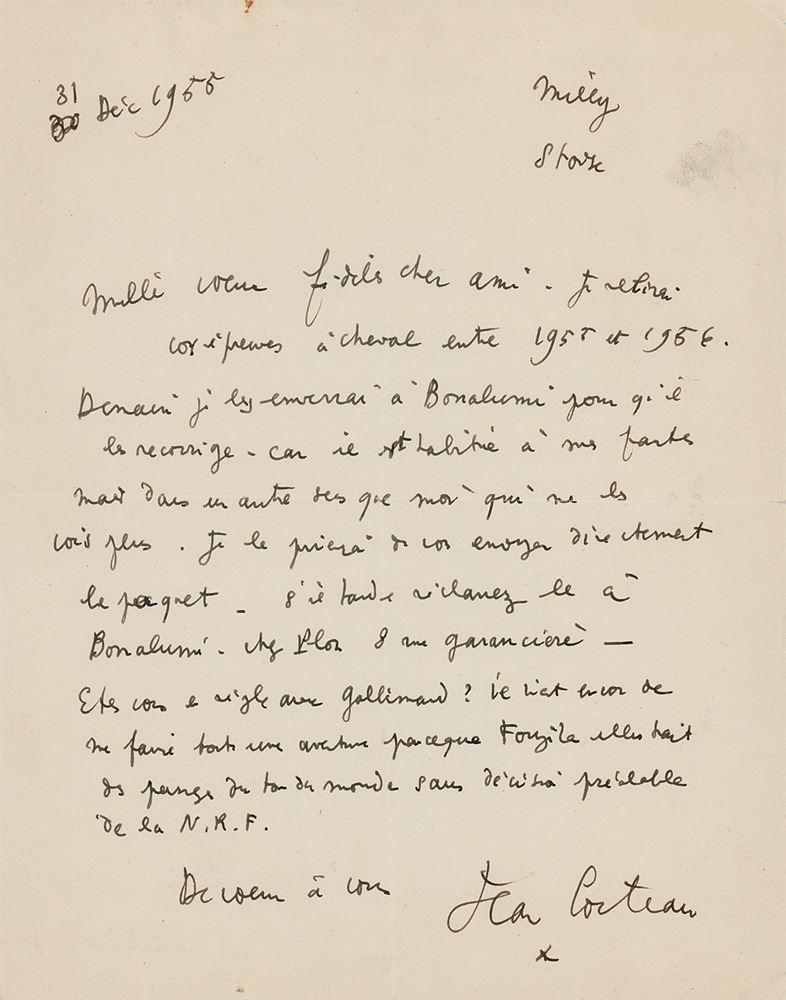 31 Déc 1955
Milly
S et Oise
Mille voeux fidèles cher ami. Je relirai
vos épreuves à cheval entre 1955 et 1956.
Demain je les enverrai à Bonalumi pour qu'il
les recorrige - car il est habitué à mes fautes
mais dans un autre sens que moi qui ne les
vois plus. Je le prierai de vos envoyer directement
le paquet - s'il tarde réclamez le à
Bonalumi - chez Plon 8 rue garancière —
Etes vous en règle avec Gallimard ? il vient encor de
me faire toute une aventure parceque illustrait
des pages du tour du monde sans décision préalable
de la N.R.F.
De coeur à vous
Jean Cocteau